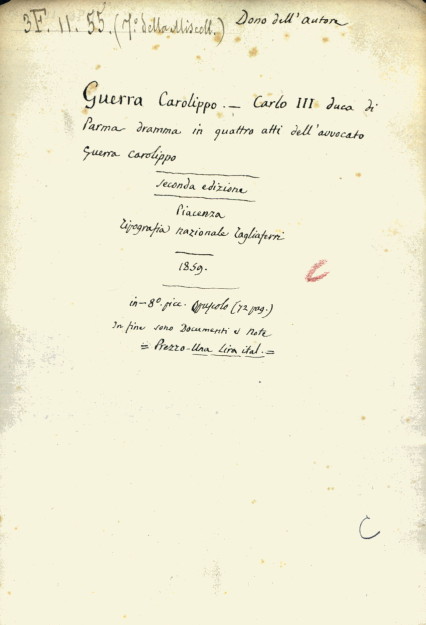 3F. 11. 55. (7º della Miscell.) Dono dell'autore
Guerra Carolippo. — Carlo III duca di
Parma dramma in quattro atti dell'avvocato
Guerra Carolippo
seconda edizione
Piacenza
Tipografia nazionale Tagliaferri
1859.
in-8º. picc. Opuscolo (72 pag.)
In fine sono Documenti e Note
= Prezzo-Una Lira ital. =
C
C